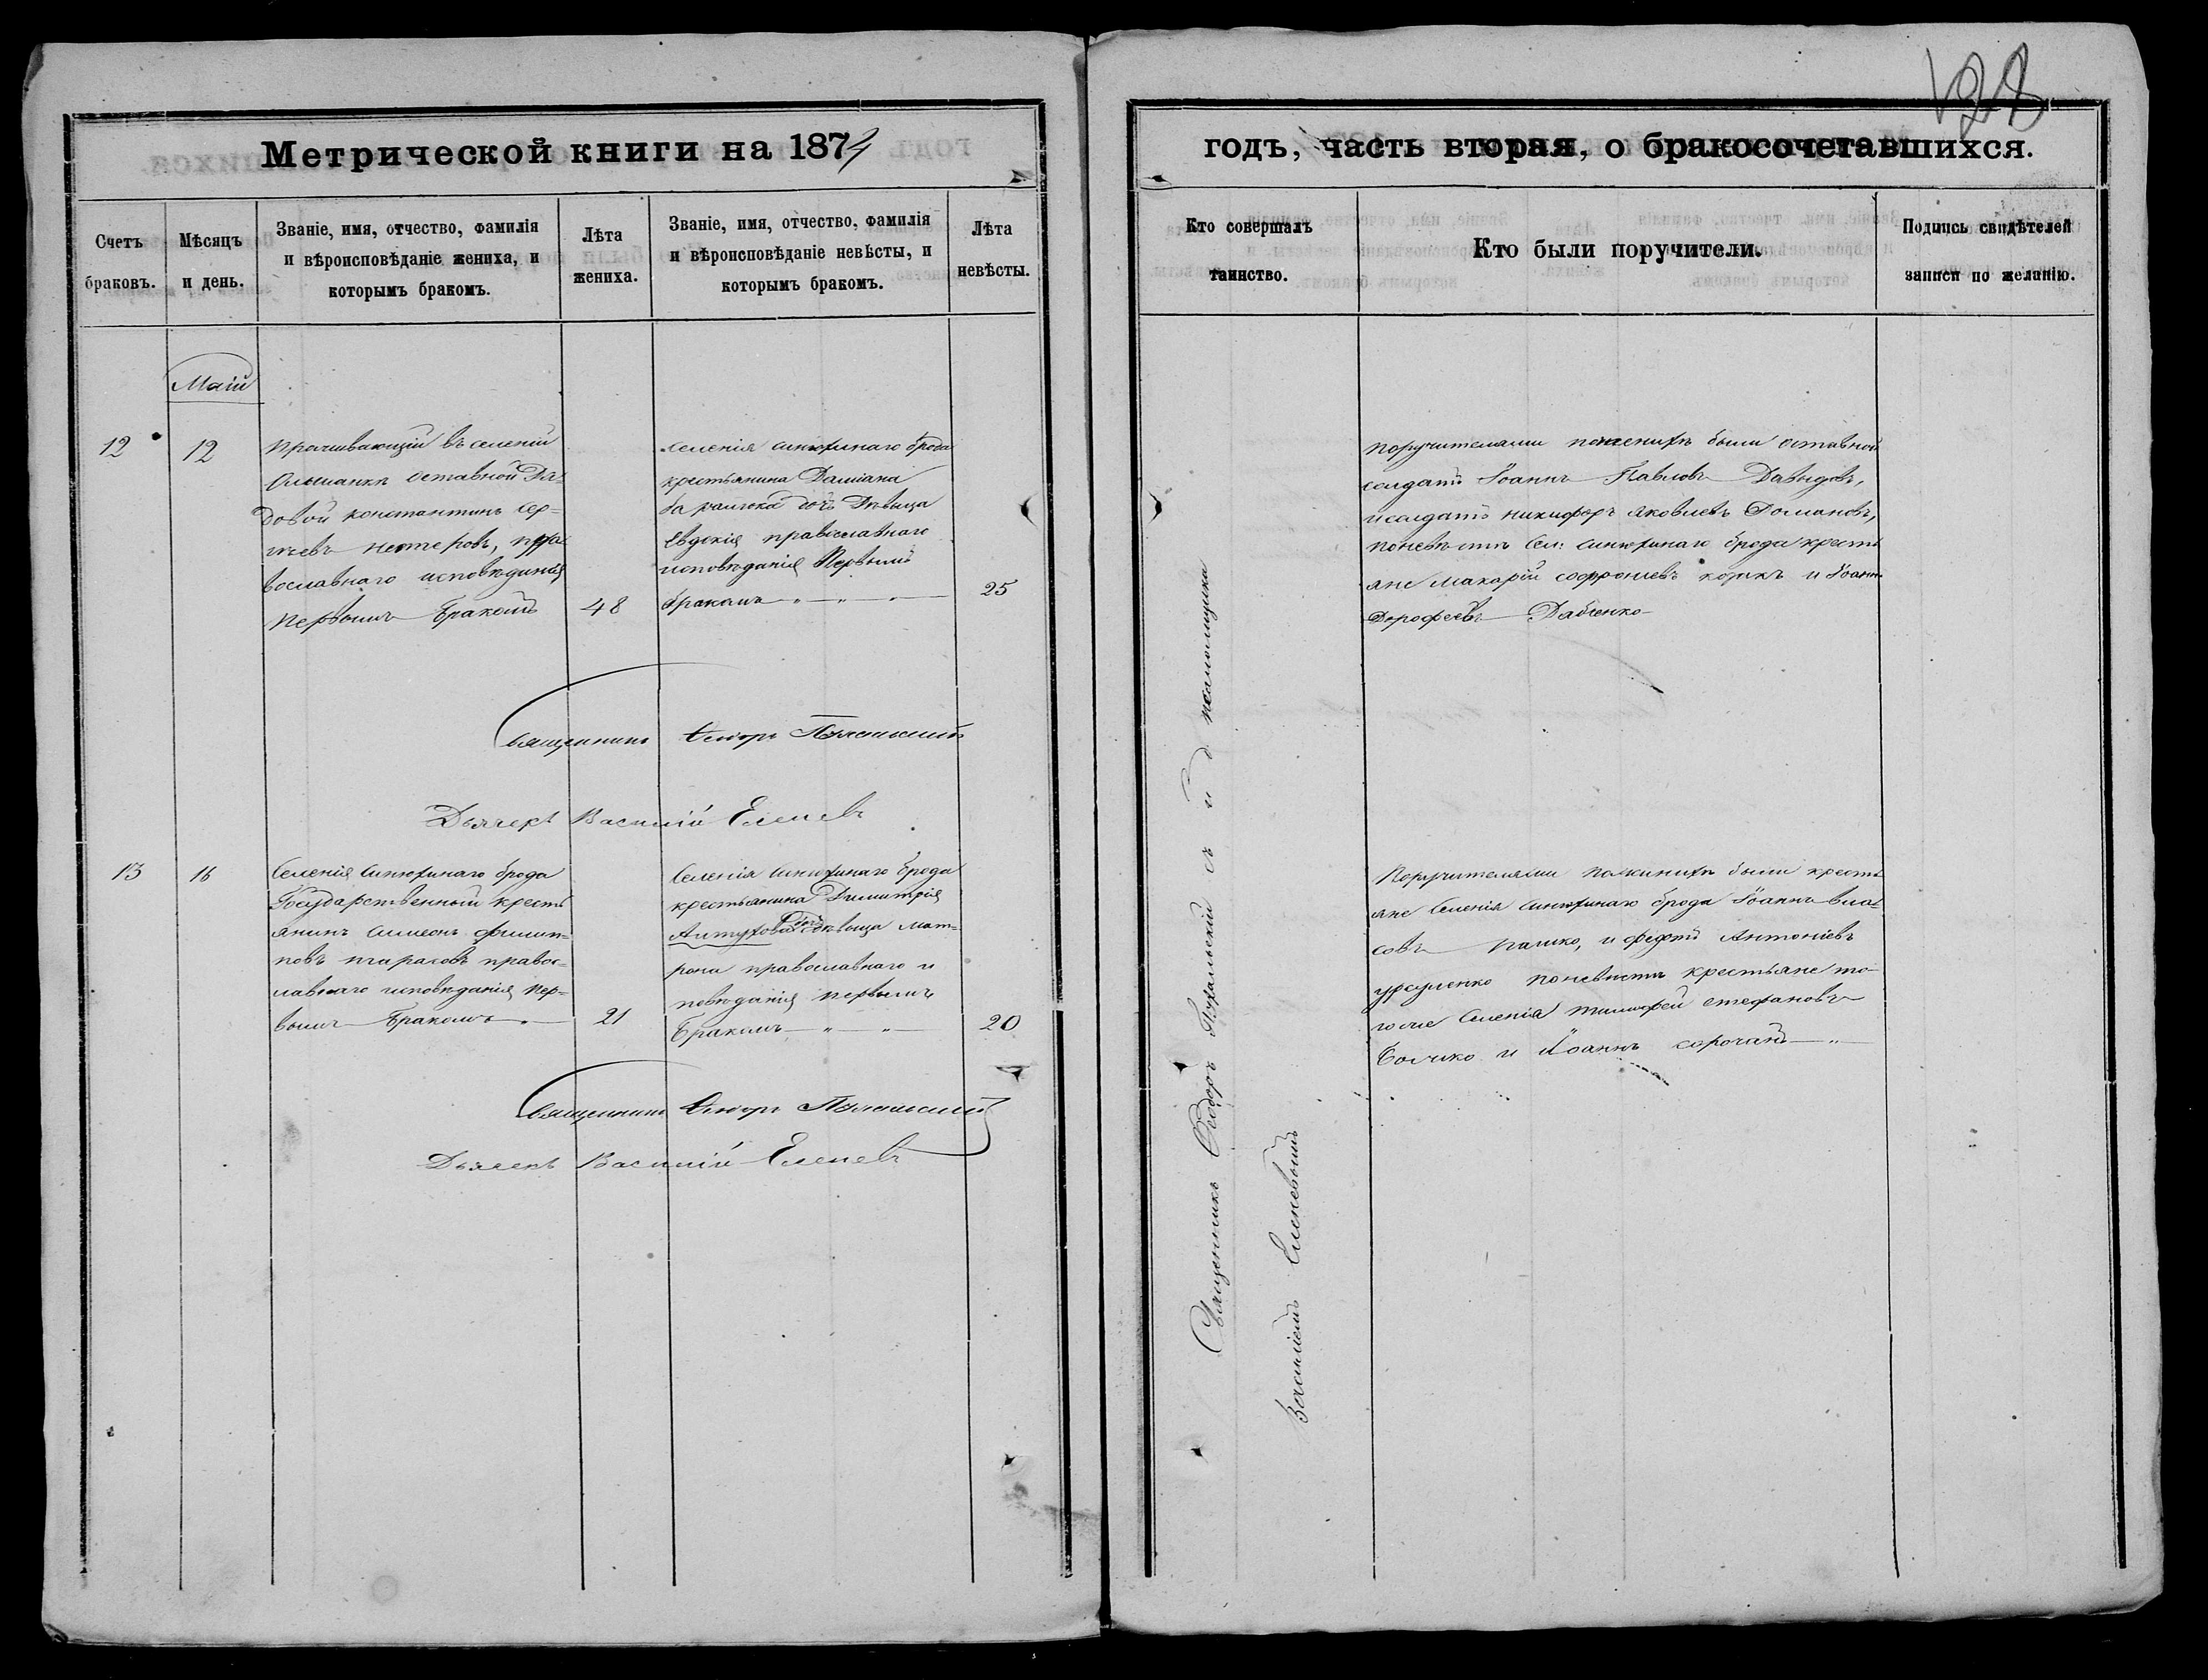 128
Метрической книги на 1874
годъ, часть вторая, о бракосочетавшихся.
Счетъ браковъ.
Мѣсяцъ и день.
Званіе, имя, отчество, фамилія
и вѣроисповѣданіе жениха, и
которымъ бракомъ.
Лѣта жениха.
Званіе, имя, отчество, фамилія
и вѣроисповѣданіе невѣсты, и
которымъ бракомъ.
Лѣта невѣсты.
Кто совершалъ таинство.
Кто были поручители.
Подпись свидѣтелей
записи по желанію.
Маій
12
12
Проживающій въ селеніи
Ольшанки оставной Ря-
довой константинъ Сер-
гѣевъ нестеровъ, пра
вославнаго исповѣданія
первымъ Бракомъ
48
селенія синюхинаго брода
крестьянина Даміана
дочь Дѣвица
Евдокія православнаго
исповѣданія Первымъ
бракомъ
25
поручителями поженихѣ были отставной
солдатъ Іоаннъ Павловъ Давыдовъ,
исолдатъ никифоръ яковлевъ Домановъ,
поневѣстѣ Сел: синюхинаго брода кресть
яне макарій софроніевъ и Іоаннъ
Дорофеевъ
Священникъ Ѳеодоръ
Дьячекъ Василій Еленевъ
13
16
Селенія Синюхинаго брода
Государственный кресть
янинъ симеонъ филип-
повъ тарасовъ правос-
лавнаго исповѣданія пер-
вымъ Бракомъ
21
Селенія Синюхинаго брода
крестьянина Димитрія
дочь
Дѣвица мат-
рона православнаго и
повѣданія первымъ
Бракомъ
20
Поручителями поженихѣ были кресть
яне Селенія синюхинаго брода Іоаннъ вла-
совъ и федотъ Антоніевъ
поневѣстѣ крестьяне то-
гоже Селенія тимофей стефановъ
Бочко и Іоаннъ сорочанъ
Священникъ Ѳеодоръ
Дьячекъ Василій Еленевъ
Священникъ Ѳеодоръ съ и д псаломщика
Василіемъ Еленевымъ